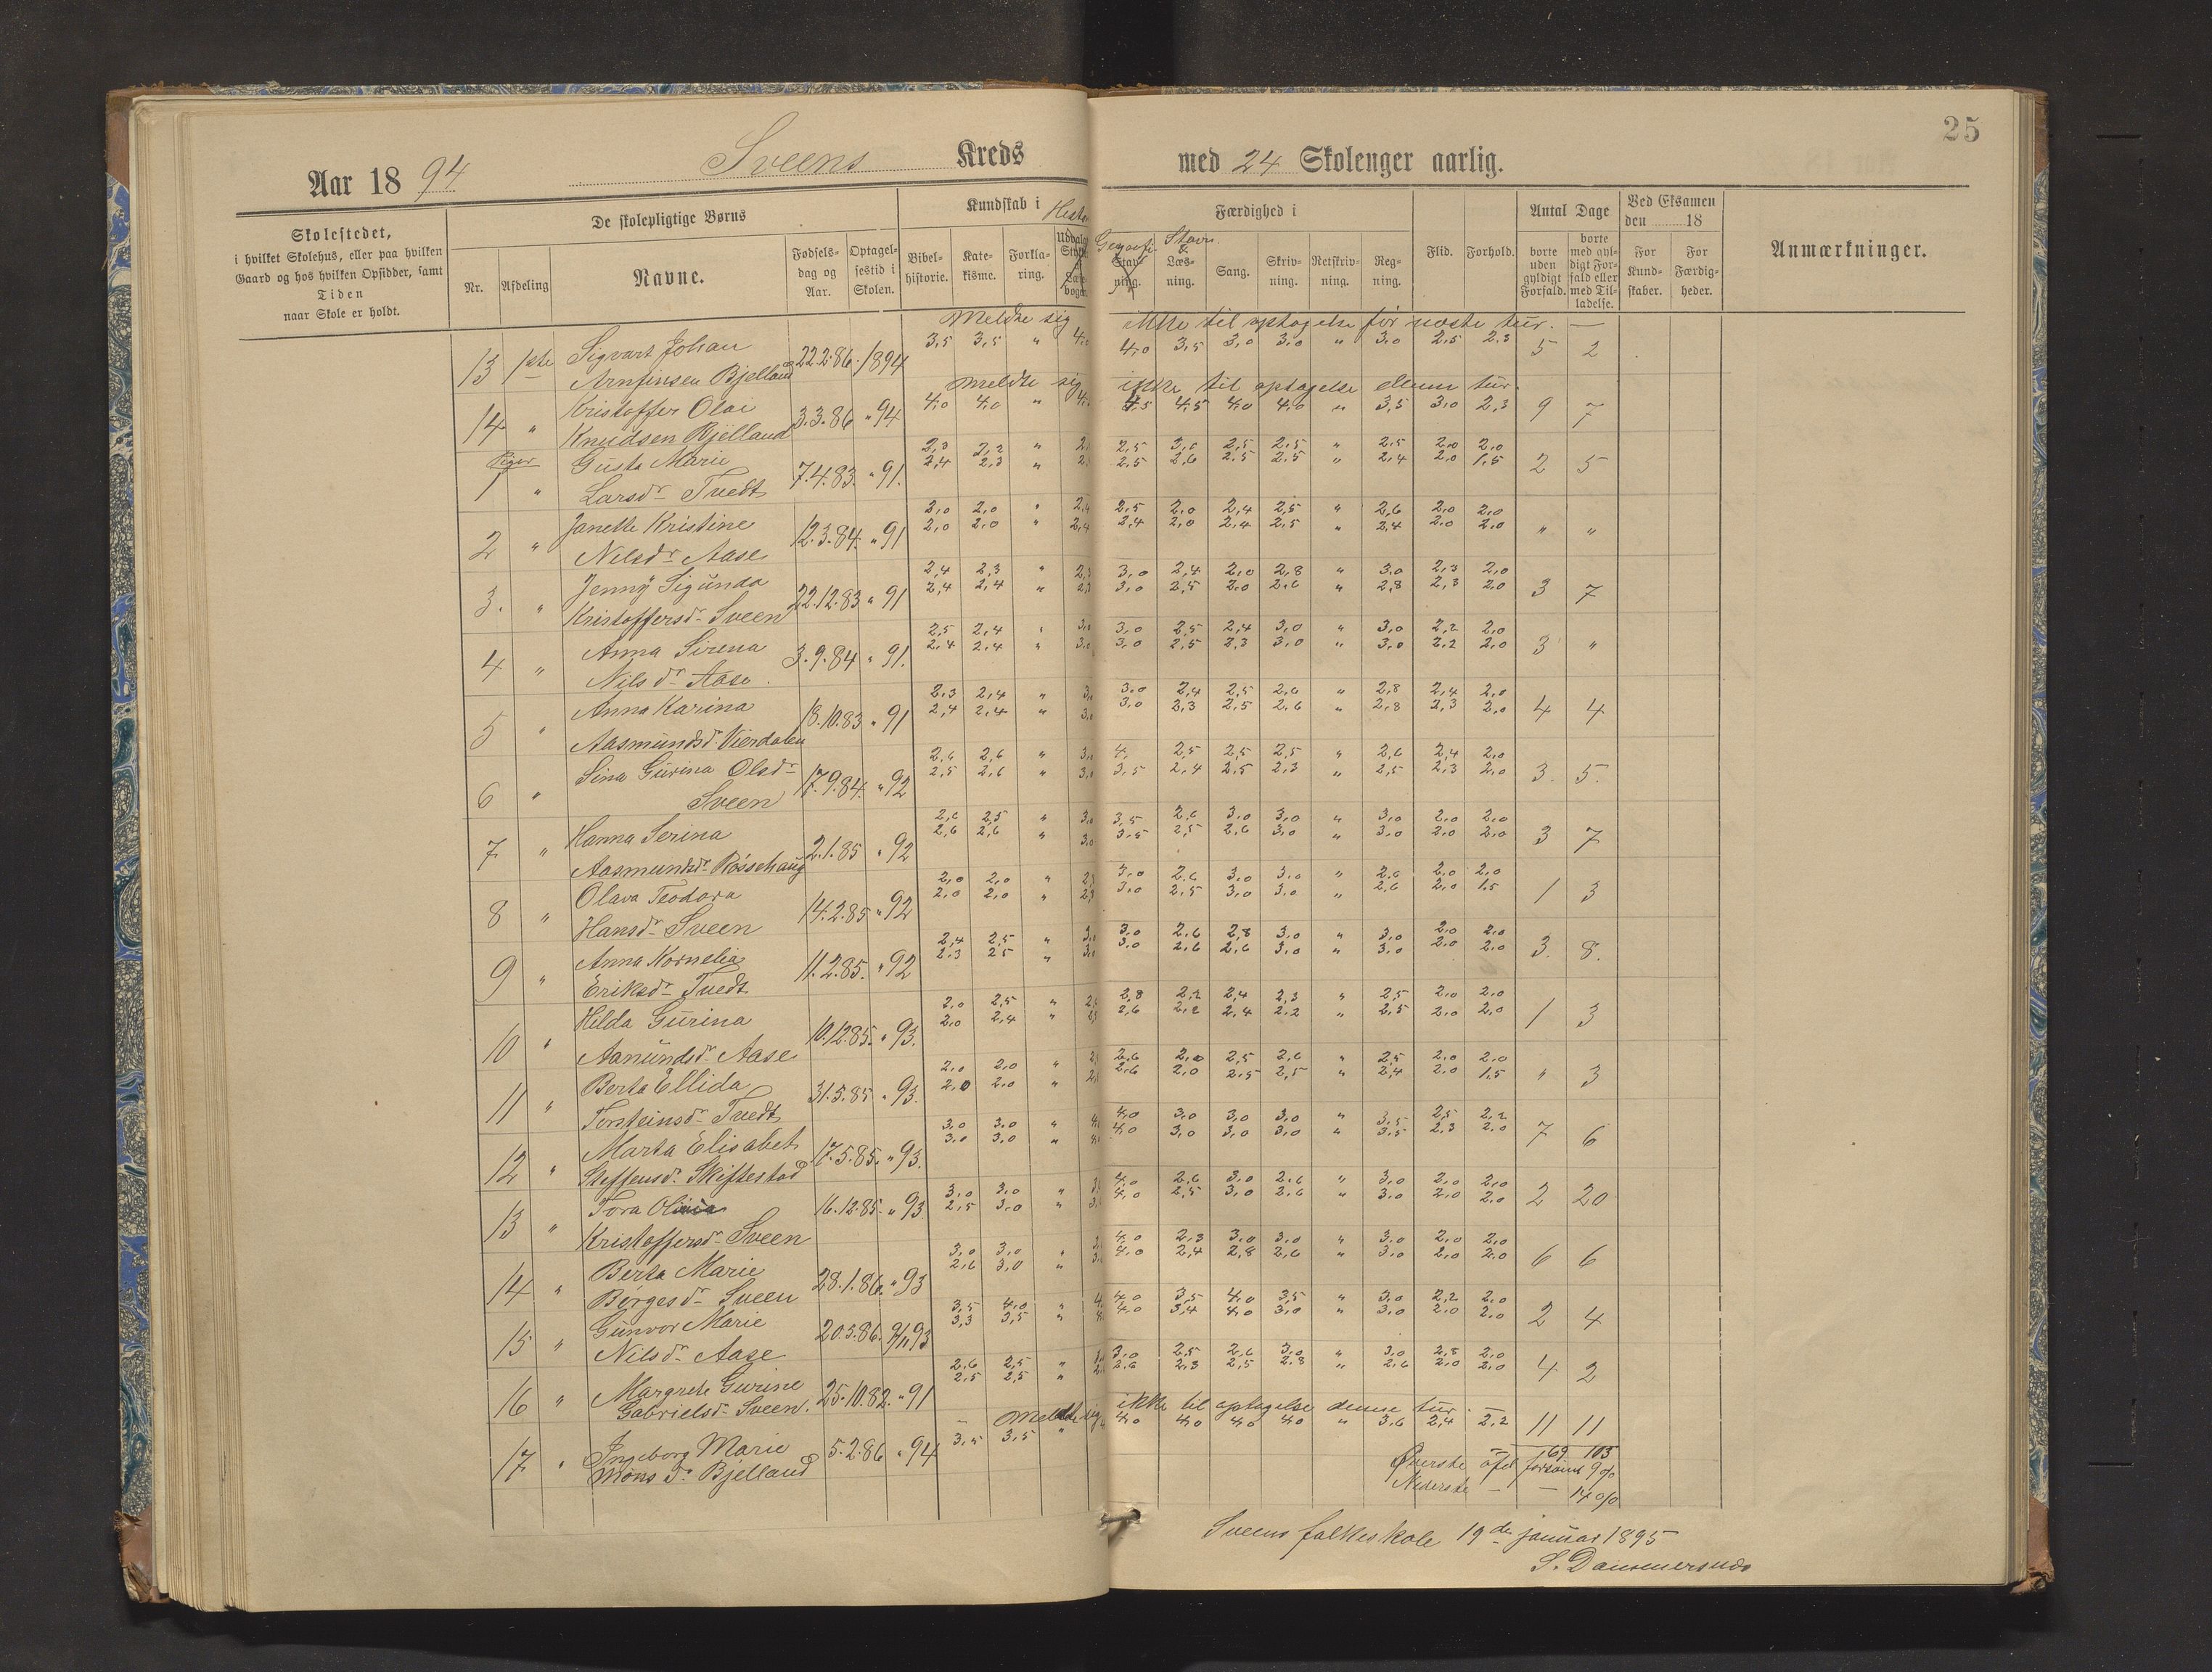 25
Aar 1894 Sveens Kreds med 24 Skolenger aarlig.
Skolestedet,
i hvilket Skolehus, eller paa hvilken
Gaard og hos hvilken Opsidder, samt
Tiden
naar Skole er holdt.
De skolepligtige Børns
Kundskab i
Færdighed i
Antal Dage
Ved Eksamen
den 18
Nr. Afdeling Navne. Fødselsdag og Aar. Optagelsestid i Skolen. Bibelhistorie. Katekisme. Forklaring. Flid. Forhold.
Stavn. & Læsning. Sang. Skrivning. Retskrivning. Regning.
borte uden gyldigt Forfald. borte med gyldigt Forfald eller med Tilladelse.
For Kundskaber. For Færdigheder.
Anmærkninger.
Meldte sig ikke til optagelse før næste tur. —
13 1ste Sigvart Johan Arnfinsen Bjelland 22.2.86. 1894 3,5 3,5 " 4,0 4,0 3,5 3,0 3,0 " 3,0 2,5 2,3 5 2
Meldte sig ikke til optagelse denne tur.
14 " Kristoffer Olai Knudsen Bjelland 3.3.86 " 94 4,0 4,0 " 4,5 4,5 4,0 4,0 " 3,5 3,0 2,3 9 7
Piger
2,3 2,2 " 2,5 3,0 2,5 2,5 " 2,5 2,0 2,0
1 " Gusta Marie Larsdr Tvedt 7.4.83. " 91. 2,4 2,3 " 2,5 2,6 2,5 2,5 " 2,4 2,0 1,5 2 5
2,0 2,0 " 2,4 2,5 2,0 2,4 2,5 " 2,6 2,0 2,0
2 " Janette Kristine Nelsdr Aase 12.3.84. " 91 2,0 2,0 " 2,4 2,4 2,0 2,4 2,5 " 2,4 2,0 2,0 " "
2,4 2,3 " 2,3 3,0 2,4 2,0 2,8 " 3,0 2,3 2,0
3. " Jenny Sigunda Kristoffersdr Sveen 22.12.83 " 91 2,4 2,4 " 2,3 3,0 2,5 2,0 2,6 " 2,8 2,3 2,0 3 7
2,5 2,4 " 3,0 3,0 2,5 2,4 3,0 " 3,0 2,2 2,0
4 " Anna Sirena Nilsdr Aase. 3.9.84 " 91. 2,4 2,4 " 3,0 3,0 2,5 2,3 3,0 " 3,0 2,2 2,0 3 "
2,3 2,4 " 3,0 3,0 2,4 2,5 2,6 " 2,8 2,4 2,0
5 " Anna Karina Aasmundsdr Vierdalen 18.10.83 " 91 2,4 2,4 " 3,0 3,0 2,3 2,5 2,6 " 2,8 2,3 2,0 4 4
2,6 2,6 " 3,0 4, 2,5 2,5 2,5 " 2,6 2,4 2,0
6 " Sina Gurina Olsdr Sveen 17.9.84. " 92 2,5 2,6 " 3,0 3,5 2,4 2,5 2,3 " 2,5 2,3 2,0 3. 5.
2,6 2,5 " 3,0 3,5 2,6 3,0 3,0 " 3,0 2,0 2,0
7 " Hanna Serina Aasmundsdr Røssehaug 2.1.85 " 92 2,6 2,6 " 3,0 3,5 2,5 2,6 3,0 " 3,0 2,0 2,0 3 7
2,0 2,0 " 3,0 2,6 3,0 3,0 " 2,6 2,0 2,0
8 " Olava Teodora Hansdr Sveen 14.2.85 " 92 2,0 2,0 " 3,0 2,5 3,0 3,0 " 2,6 2,0 1,5 1 3
2,4 2,5 " 3,0 3,0 2,6 2,8 3,0 " 3,0 2,0 2,0
9 " Anna Kornelia Eriksdr Tvedt 11.2.85. " 92 2,3 2,5 " 3,0 3,0 2,6 2,6 3,0 " 3,0 2,0 2,0 3. 8.
2,0 2,5 " 2,8 2,2 2,4 2,3 " 2,5 2,0 2,0
10 " Hilda Gurina Aanundsdr Aase 10.12.85. " 93. 2,0 2,4 " 2,6 2,2 2,4 2,2 " 2,5 2,0 2,0 1 3
2,0 2,0 " 2,6 2,0 2,5 2,6 " 2,5 2,0 2,0
11 " Berta Ellida Torsteinsdr Tvedt 31.5.85 " 93. 2,0 2,0 " 2,6 2,0 2,5 2,5 " 2,4 2,0 1,5 " 3
3,0 3,0 " 4,0 3,0 3,0 3,0 " 3,5 2,5 2,2
12 " Marta Elisabet Steffensdr Skiftestad 17.5.85. " 93. 3,0 3,0 " 4,0 3,0 3,0 3,0 " 3,5 2,3 2,0 7 6
3,0 3,0 " 4,0 2,6 3,0 2,6 " 3,0 2,0 2,0
13 " Tora Olinia Kristoffersdr Sveen 16.12.85. " 93. 2,5 3,0 " 4,0 2,5 3,0 2,6 " 3,0 2,0 2,0 2 20
3,0 3,0 " 4,0 2,3 3,0 3,0 " 3,0 2,0 2,0
14 " Berta Marie Børgesdr Sveen 28.1.86. " 93 2,6 3,0 " 4,0 2,4 2,8 2,6 " 3,0 2,0 2,0 6 6
3,5 4,0 " 4,0 3,5 4,0 3,5 " 3,0 2,2 2,0
15 " Gunvor Marie Nilsdr Aase 20.3.86. 93 3,3 3,5 " 4,0 3,4 4,0 3,0 " 3,0 2,0 2,0 2 4
2,6 2,5 " 3,0 2,5 2,6 3,0 " 3,0 2,8 2,0
16 " Margrete Gurine Gabrielsdr Sveen. 25.10.82. " 91 2,5 2,5 " 2,6 2,3 2,5 2,8 " 2,6 2,0 2,0 4 2
— Meldte sig ikke til optagelse denne tur. —
17 " Ingeborg Marie Mons dr Bjelland 5.2.86 " 94 3,5 3,5 " 4,0 4,0 4,0 4,0 " 3,6 2,4 2,2 11 11
169 103
Øverste afd forsømt 9%
Nederste — — 14%
Sveens folkeskole 19de januar 1895
S. Dammersnæs